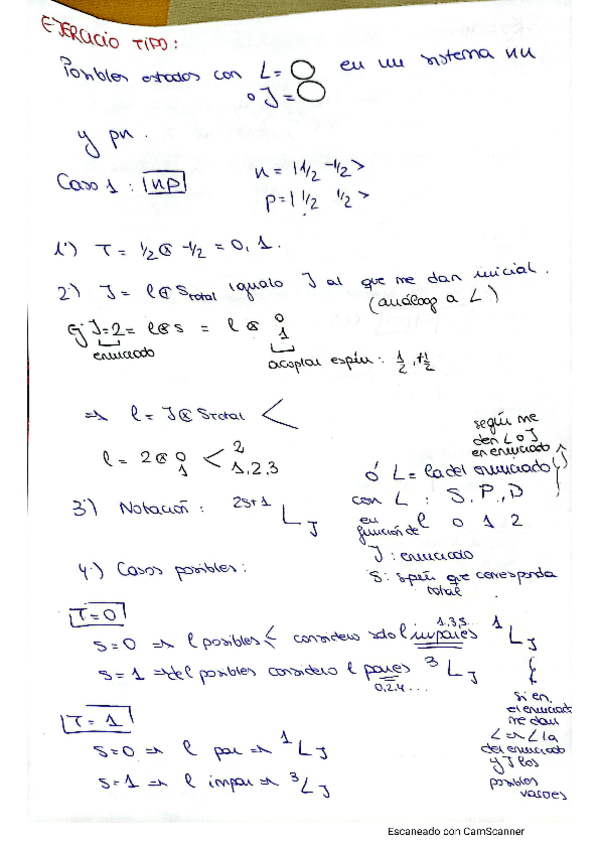 EJERCICIO TIPO:
Posibles estados con L = ◯ en un sistema nn
o J = ◯
y pn.
Caso 1: np
n = |1/2 -1/2>
p = |1/2 1/2>
1º) T = 1/2 ⊗ -1/2 = 0, 1.
2º) J = l ⊗ Stotal igualo J al que me dan inicial.
(análogo a L)
Ej: J=2 = l⊗s = l ⊗ 0
1
enunciado
acoplar espín: 1/2, +1/2
⇒ l = J ⊗ Stotal <
l = 2 ⊗ 0 < 2
1 1, 2, 3
según me
den L o J
en enunciado
ó L = la del enunciado
3º) Notación: 2S+1 L J
con L : S, P, D
en función de l 0 1 2
J : enunciado
S: spin que corresponda
total
4º) Casos posibles:
T=0
S=0 ⇒ l posibles < considero sólo l impares 1 L J
1,3,5...
S=1 ⇒ del posibles considero l pares 3 L J
0,2,4...
si en
el enunciado
me dan
L ⇒ L la
del enunciado
y J los
posibles
valores
T=1
S=0 ⇒ l par ⇒ 1 L J
S=1 ⇒ l impar ⇒ 3 L J
Escaneado con CamScanner